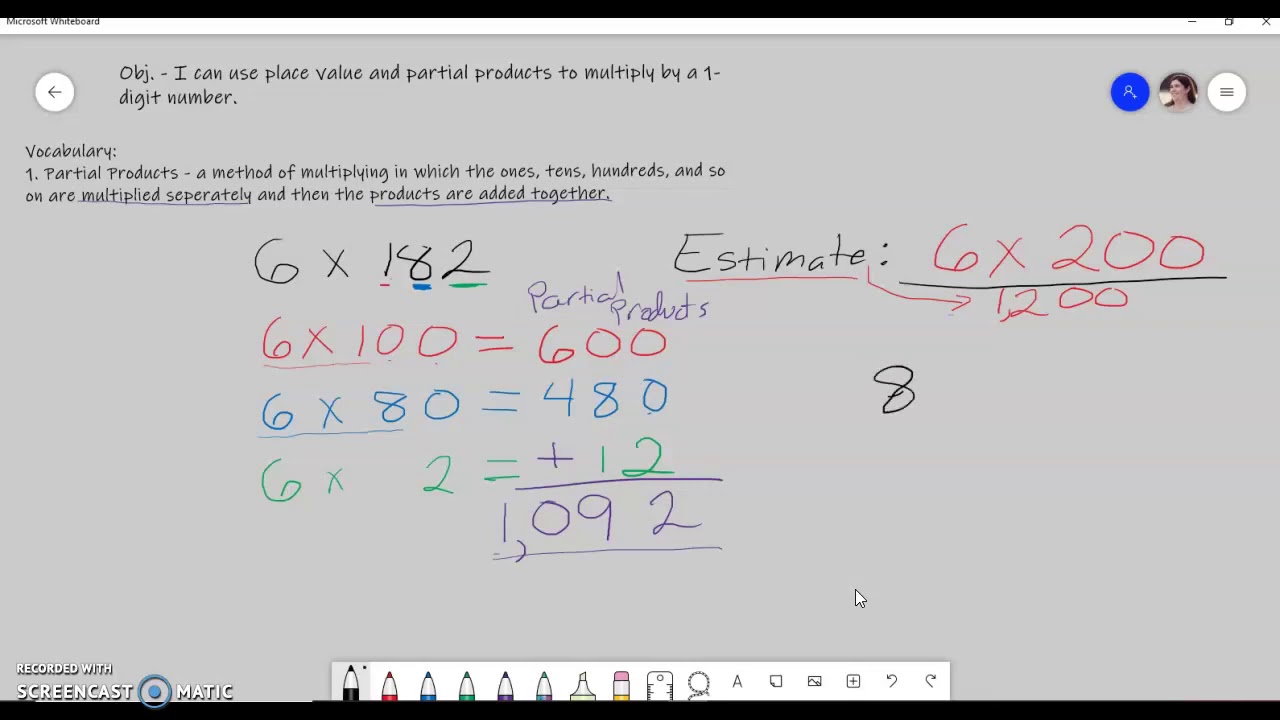 Microsoft Whiteboard
Obj. - I can use place value and partial products to multiply by a 1-
digit number.
Vocabulary:
1. Partial Products - a method of multiplying in which the ones, tens, hundreds, and so
on are multiplied seperately and then the products are added together.
6 x 182
Estimate: 6 x 200
1,200
Partial
Products
6 x 100 = 600
6 x 80 = 480
6 x 2 = + 12
1,092
8
RECORDED WITH
SCREENCAST MATIC